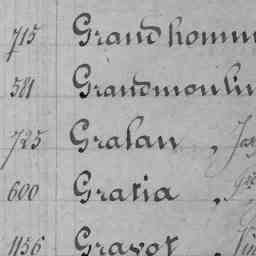 715 Grandhomm
581 Grandmoulin
725 Gralan , Ja
600 Gratia ,
1156 Gravot